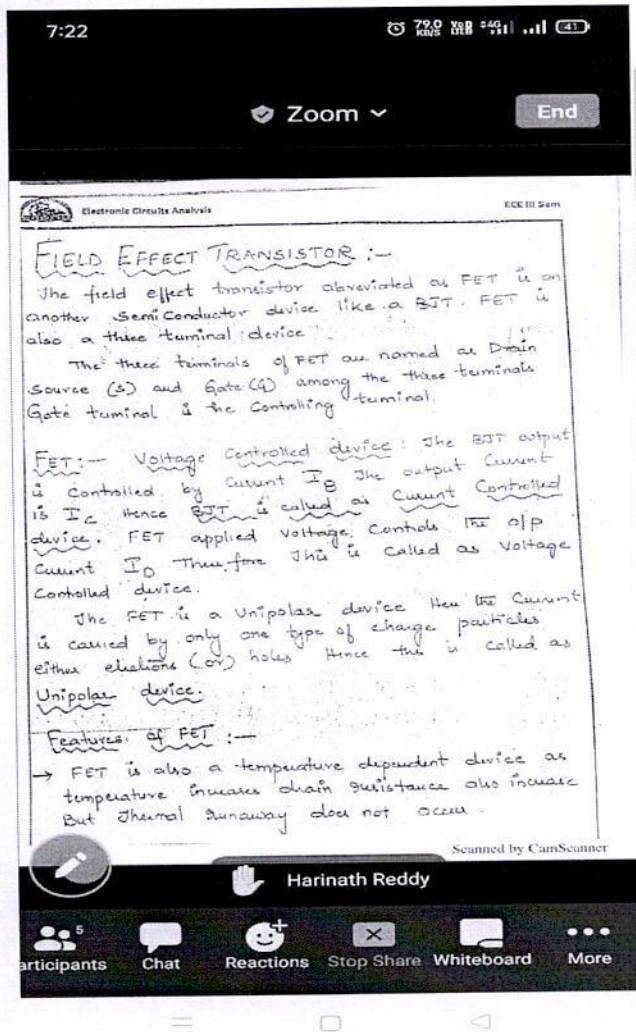 7:22
79.0 KB/S Vo LTE 4G 41
Zoom
End
Electronic Circuits Analysis
ECE III Sem
FIELD EFFECT TRANSISTOR :-
The field effect transistor abreviated as FET is an
another SemiConductor device like a BJT. FET is
also a three terminal device
The three terminals of FET are named as Drain
Source (S) and Gate (G) among the three terminals
Gate terminal is the Controlling terminal.
FET:- Voltage Controlled device: The BJT output
is Controlled by Current IB The output Current
is IC Hence BJT is called as Current Controlled
device. FET applied voltage Controls the o/p
Current ID Therefore This is Called as Voltage
Controlled device.
The FET is a Unipolar device Here the Current
is carried by only one type of charge particles
either electrons (or) holes Hence this is called as
Unipolar device.
Features of FET :-
→ FET is also a temperature dependent device as
temperature increases drain resistance also increase
But Thermal runaway does not occur.
Scanned by CamScanner
Harinath Reddy
5
articipants
Chat
Reactions
Stop Share
Whiteboard
More